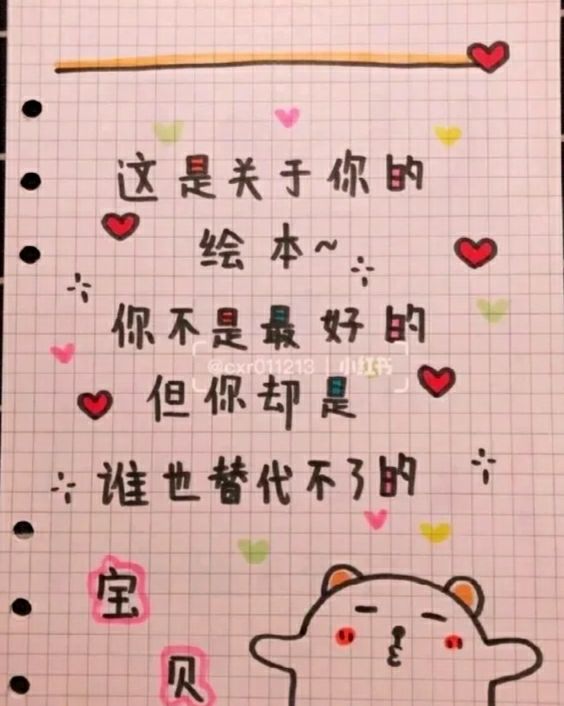 这是关于你的
绘本~
你不是最好的
@cxr011213 小红书
但你却是
谁也替代不了的
宝
贝